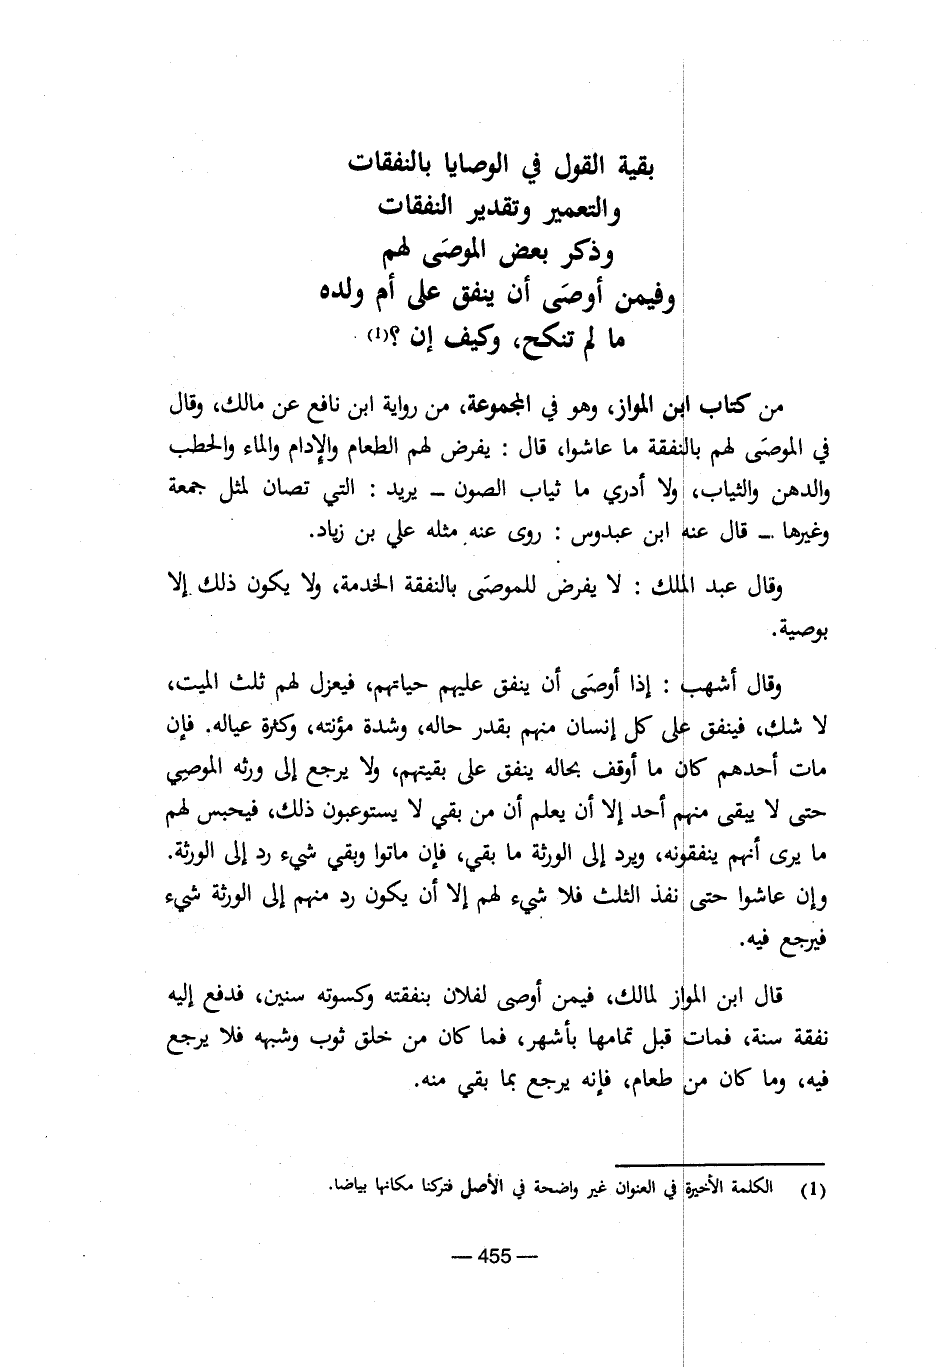 بقية القول في الوصايا بالنفقات
والتعمير وتقدير النفقات
وذكر بعض الموصَى لهم
وفيمن أوصَى أن ينفق على أم ولده
ما لم تنكح، وكيف إن ؟(1)
من كتاب ابن المواز، وهو في المجموعة، من رواية ابن نافع عن مالك، وقال
في الموصَى لهم بالنفقة ما عاشوا، قال : يفرض لهم الطعام والإدام والماء والحطب
والدهن والثياب، ولا أدري ما ثياب الصون — يريد : التي تصان لمثل جمعة
وغيرها — قال عنه ابن عبدوس : روى عنه مثله علي بن زياد.
وقال عبد الملك : لا يفرض للموصَى بالنفقة الخدمة، ولا يكون ذلك إلا
بوصية.
وقال أشهب : إذا أوصَى أن ينفق عليهم حياتهم، فيعزل لهم ثلث الميت،
لا شك، فينفق على كل إنسان منهم بقدر حاله، وشدة مؤنته، وكثرة عياله. فإن
مات أحدهم كان ما أوقف بحاله ينفق على بقيتهم، ولا يرجع إلى ورثه الموصِي
حتى لا يبقى منهم أحد إلا أن يعلم أن من بقي لا يستوعبون ذلك، فيحبس لهم
ما يرى أنهم ينفقونه، ويرد إلى الورثة ما بقي، فإن ماتوا وبقي شيء رد إلى الورثة.
وإن عاشوا حتى نفذ الثلث فلا شيء لهم إلا أن يكون رد منهم إلى الورثة شيء
فيرجع فيه.
قال ابن المواز لمالك، فيمن أوصى لفلان بنفقته وكسوته سنين، فدفع إليه
نفقة سنة، فمات قبل تمامها بأشهر، فما كان من خلق ثوب وشبهه فلا يرجع
فيه، وما كان من طعام، فإنه يرجع بما بقي منه.
(1) الكلمة الأخيرة في العنوان غير واضحة في الأصل فتركنا مكانها بياضا.
— 455 —